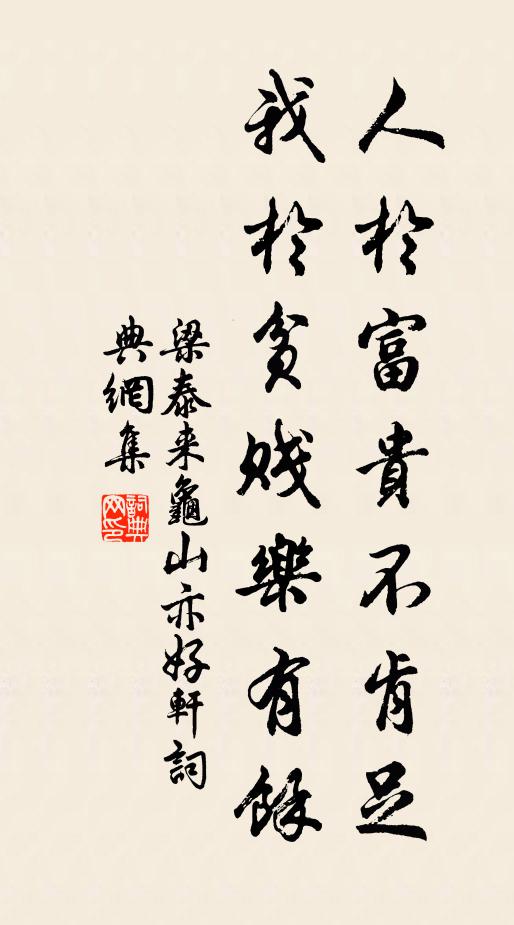 人於富貴不肯足
我於貧賤樂有餘
梁泰来龜山亦好軒詞
典網集
詞典
网印